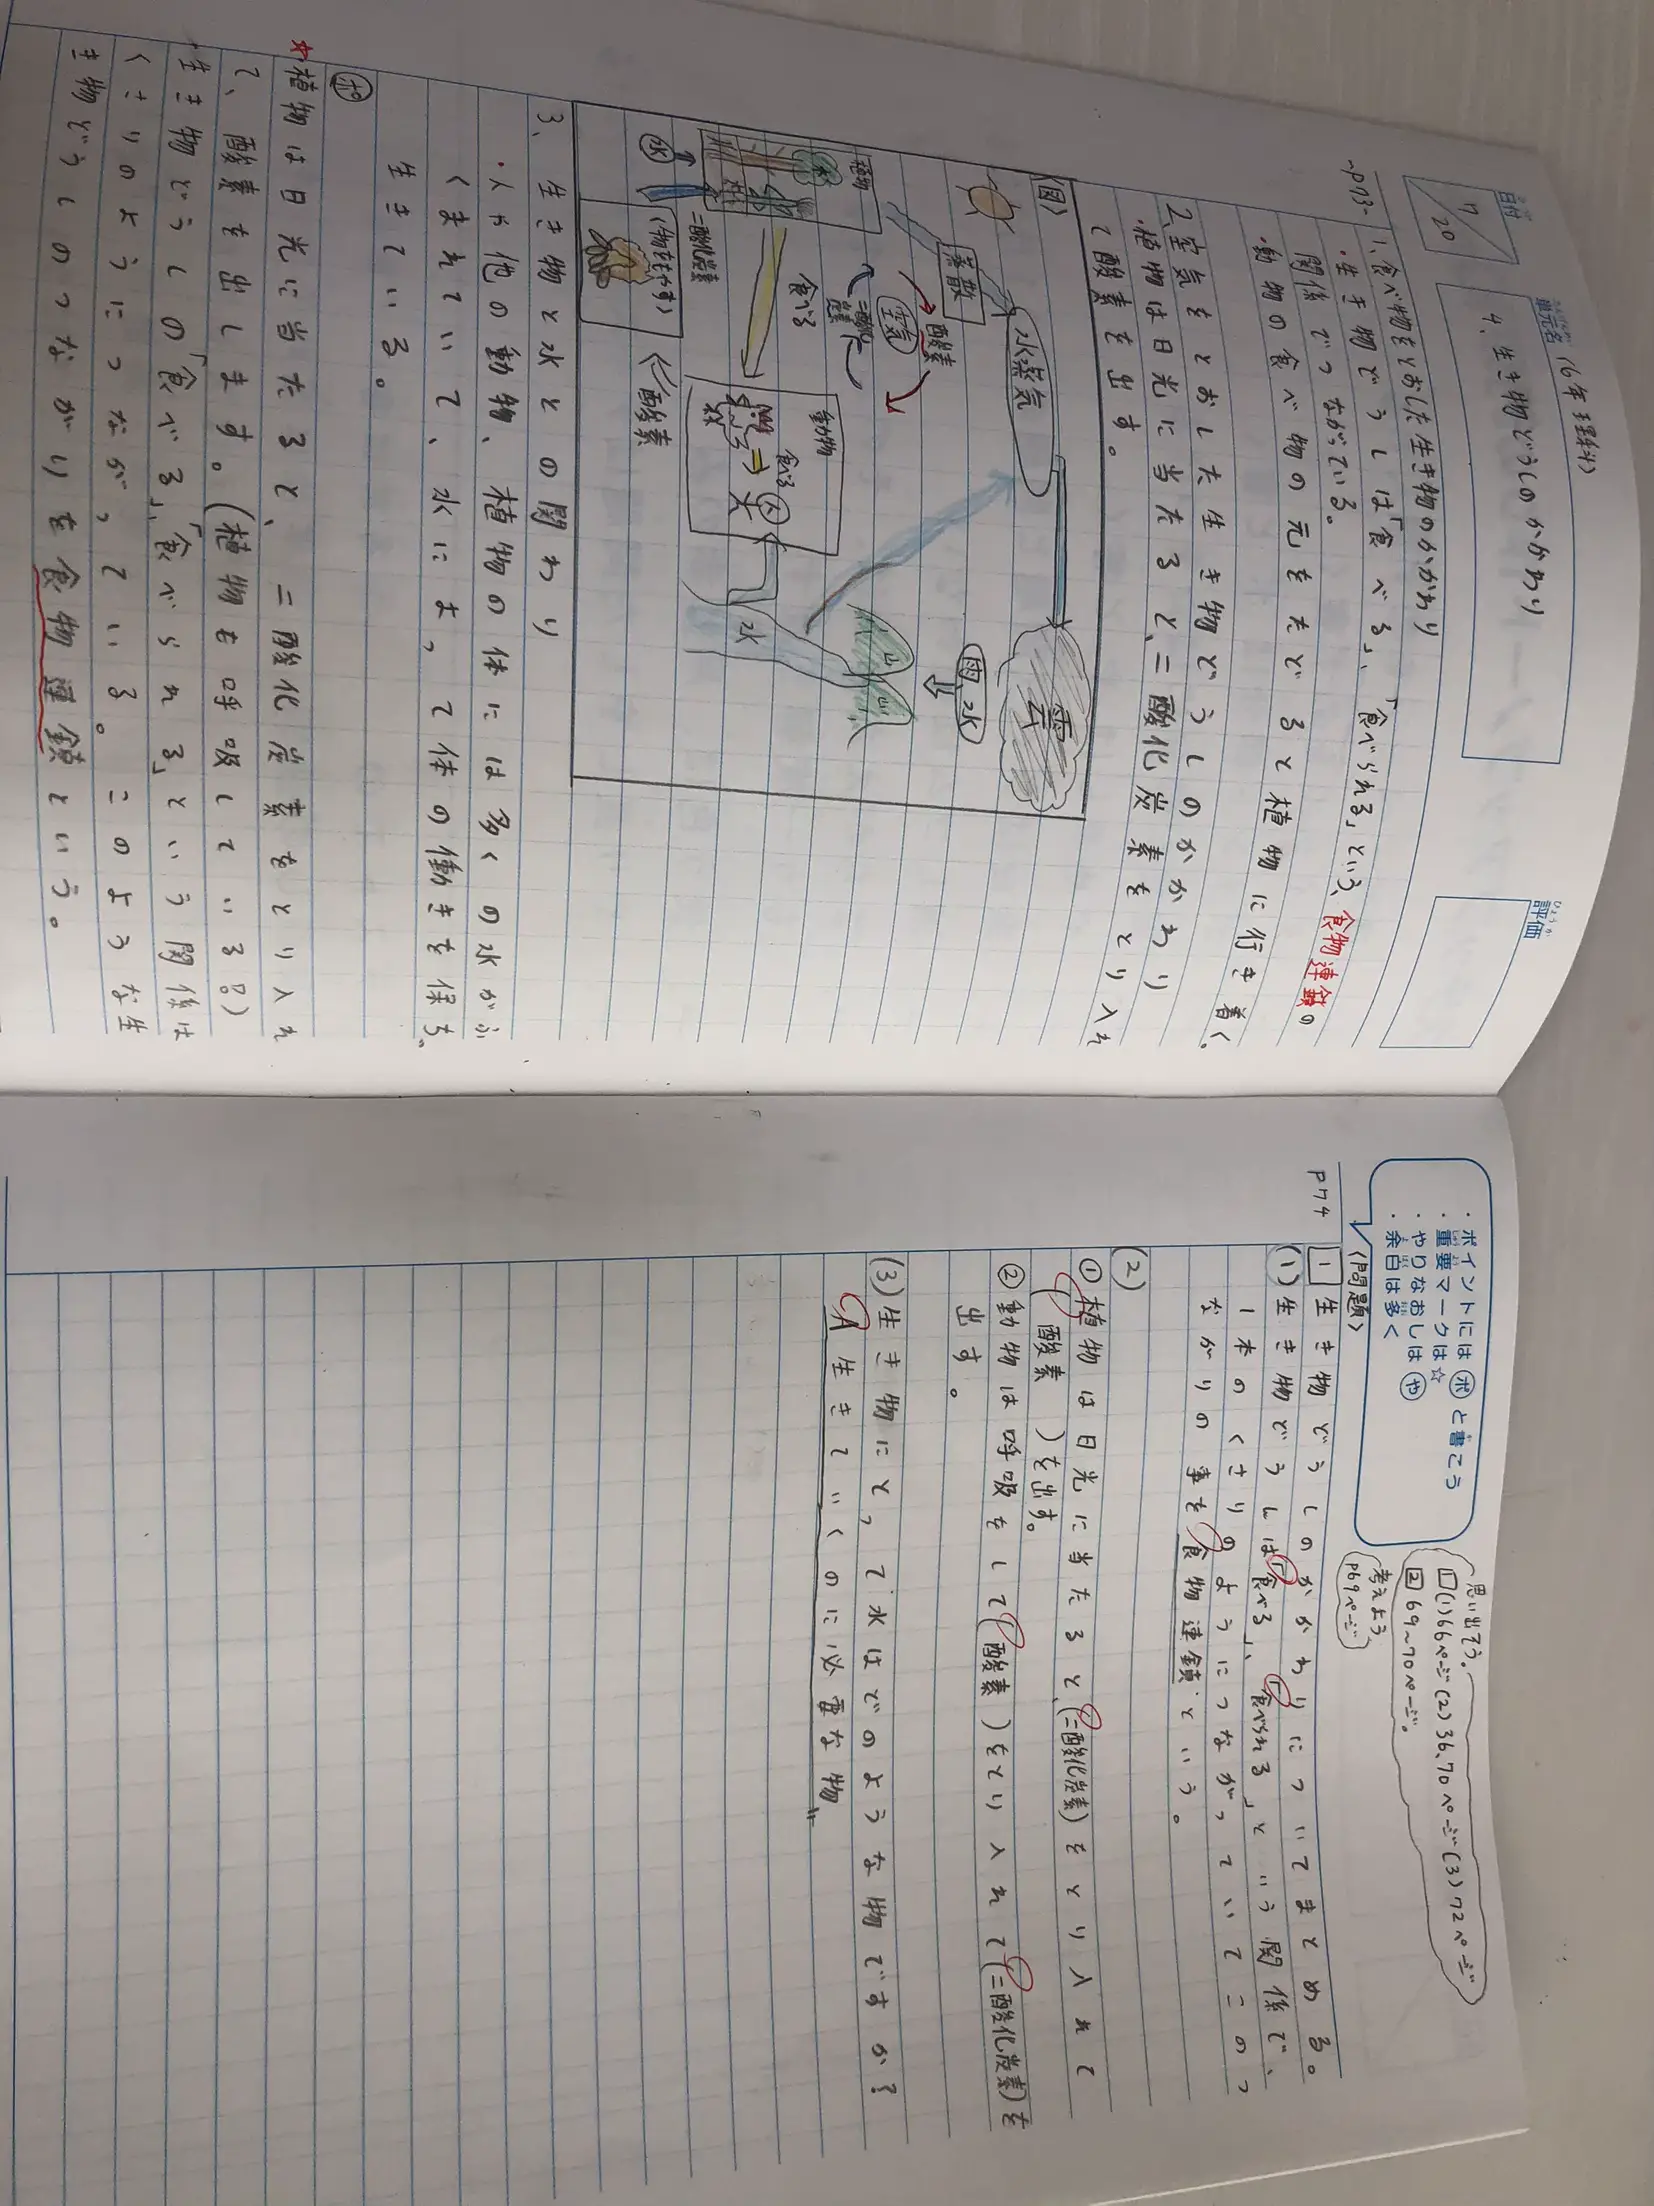 日付
7/20
単元名
(6年理科)
4、生き物どうしのかかわり
評価
~p73~
1、食べ物をとおした生き物のかかわり
・生き物どうしは「食べる」、「食べられる」という、食物連鎖の
関係でつながっている。
・動物の食べ物の元をたどると植物に行き着く。
2、空気をとおした生き物どうしのかかわり
・植物は日光に当たると、二酸化炭素をとり入れ
て酸素を出す。
(図)
水蒸気
雲
蒸散
雨、水
酸素
空気
二酸化炭素
植物
水
食べる
動物
食べる
人
山
山
水
二酸化炭素
(物をもやす)
酸素
3、生き物と水との関わり
・人や他の動物、植物の体には多くの水がふ
くまれていて、水によって体の働きを保ち、
生きている。
ポ
☆植物は日光に当たると、二酸化炭素をとり入れ
て、酸素を出します。(植物も呼吸している。)
・生き物どうしの「食べる」、「食べられる」という関係は
くさりのようにつながっている。このような生
き物どうしのつながりを食物連鎖という。
・ポイントには ポ と書こう
・重要マークは☆
・やりなおしは や
・余白は多く
思い出そう。
1(1)66ページ(2)36、70ページ(3)72ページ
2 69~70ページ。
考えよう
p69ページ
p74
〈問題〉
1 生き物どうしのかかわりについてまとめる。
(1)生き物どうしは「食べる」、「食べられる」という関係で、
1本のくさりのようにつながっていてこのつ
ながりの事を食物連鎖という。
(2)
①植物は日光に当たると(二酸化炭素)をとり入れて
(酸素)を出す。
②動物は呼吸をして(酸素)をとり入れて(二酸化炭素)を
出す。
(3)生き物にとって水はどのような物ですか?
A 生きていくのに必要な物